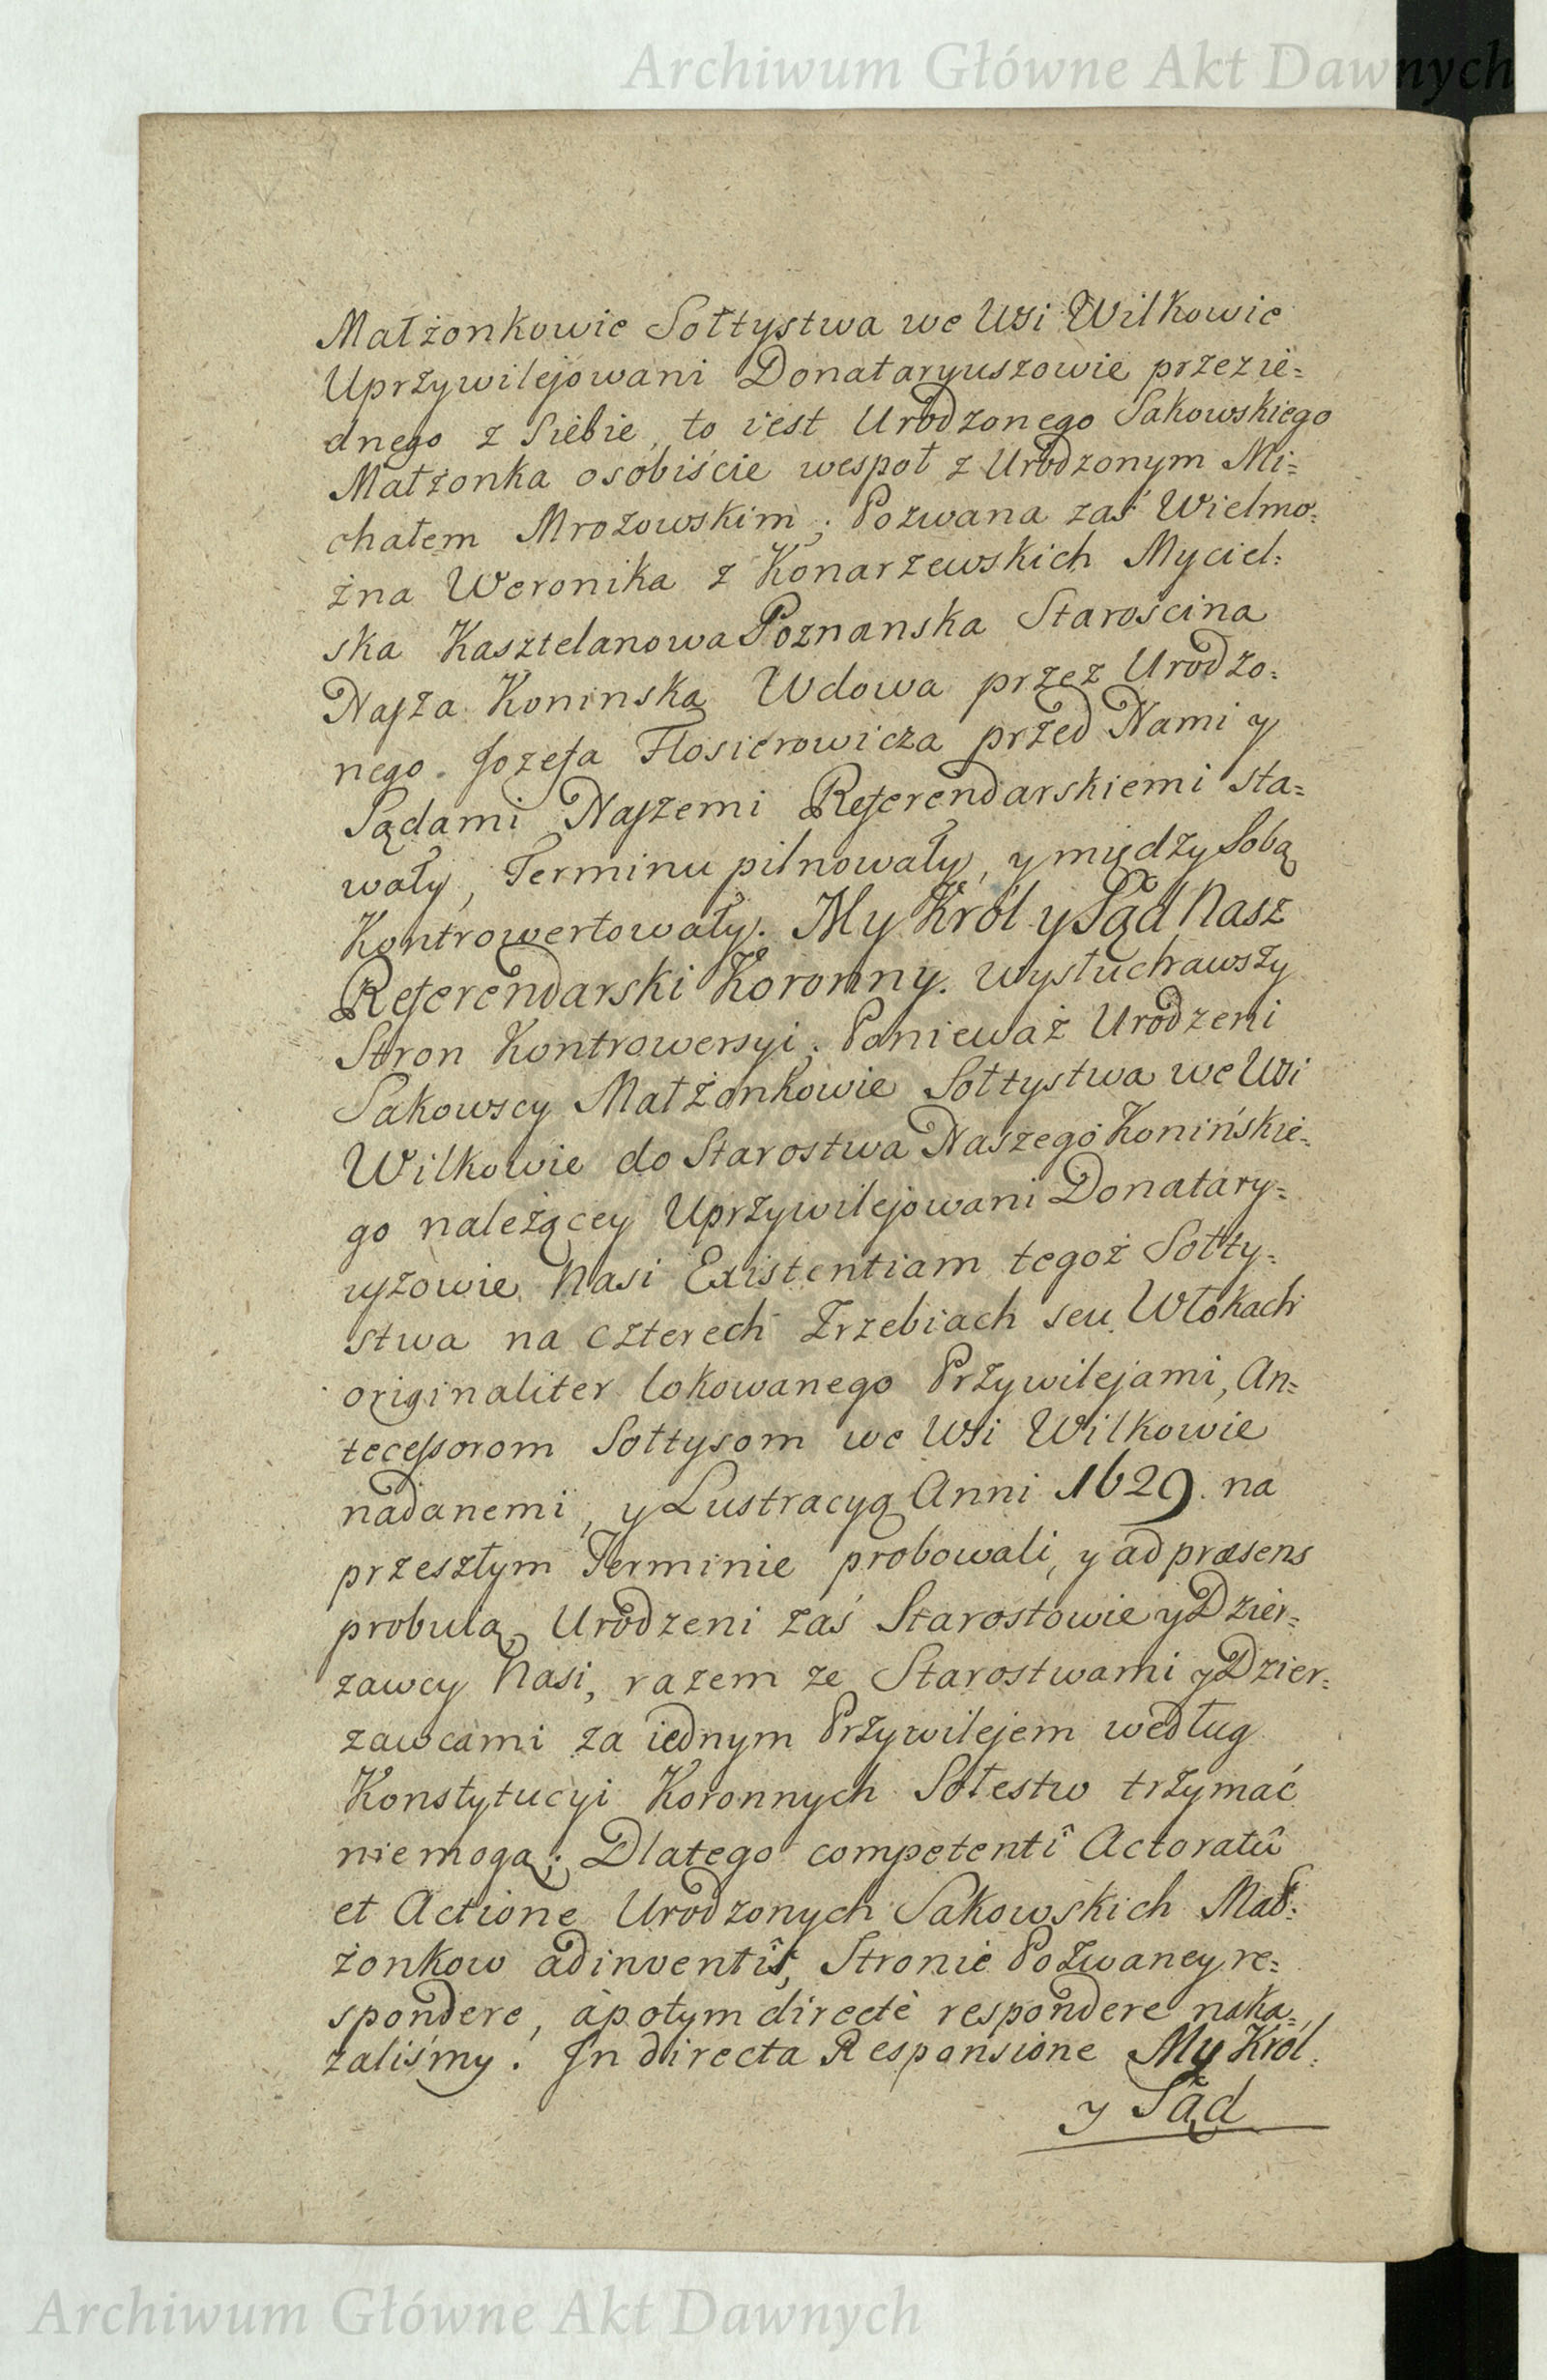 Archiwum Główne Akt Dawnych
Małżonkowie Sołtystwa we Wsi Wilkowie
Uprzywilejowani Donataryuszowie przez ie=
dnego z Siebie, to iest Urodzonego Sakowskiego
Małżonka osobiście wespoł z Urodzonym Mi=
chałem Mrozowskim; Pozwana zaś Wielmo=
żna Weronika z Konarzewskich Myciel=
ska Kasztelanowa Poznanska Starościna
Nasza Koninska Wdowa przez Urodzo=
nego Jozefa Flosierowicza przed Nami y
Sądami Naszemi Referendarskiemi sta=
wały, Terminu pilnowały, y między Sobą
Kontrowertowały. My Król y Sąd Nasz
Referendarski Koronny. wysłuchawszy
Stron Kontrowersyi; Ponieważ Urodzeni
Sakowscy Małżonkowie Sołtystwa we Wsi
Wilkowie do Starostwa Naszego Konińskie=
go należącey Uprzywilejowani Donatary=
uszowie Nasi Existentiam tegoż Sołty=
stwa na czterech Zrzebiach seu Włokach
originaliter lokowanego Przywilejami, An=
tecessorom Sołtysom we Wsi Wilkowie
nadanemi, y Lustracyą Anni 1629. na
przeszłym Terminie probowali, y ad præsens
probuią, Urodzeni zaś Starostowie y Dzier=
zawcy Nasi, razem ze Starostwami y Dzier=
zawcami za iednym Przywilejem według
Konstytucyi Koronnych Sołestw trzymać
nie mogą; Dlatego competentî Actoratû
et Actione Urodzonych Sakowskich Mał=
żonkow adinventîs, Stronie Pozwaney re=
spondere, àpotym directè respondere naka=
zaliśmy. In directa Responsione My Król
y Sąd
Archiwum Główne Akt Dawnych